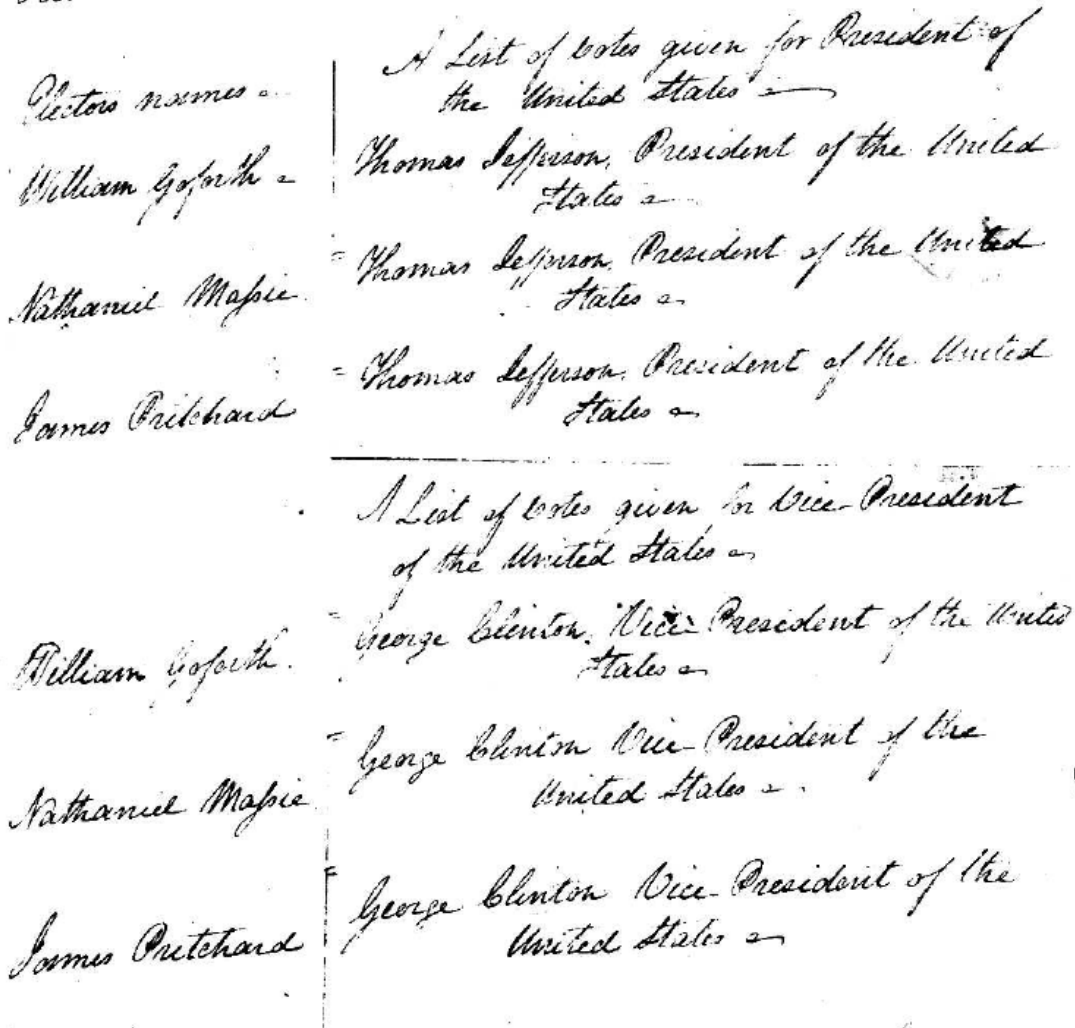 Electors names
A List of votes given for President of
the United States
William Goforth
Thomas Jefferson, President of the United
States
Nathaniel Massie
Thomas Jefferson, President of the United
States
James Pritchard
Thomas Jefferson, President of the United
States
A List of votes given for Vice-President
of the United States
William Goforth.
George Clinton, Vice-President of the United
States
Nathaniel Massie
George Clinton Vice-President of the
United States
James Pritchard
George Clinton Vice-President of the
United States